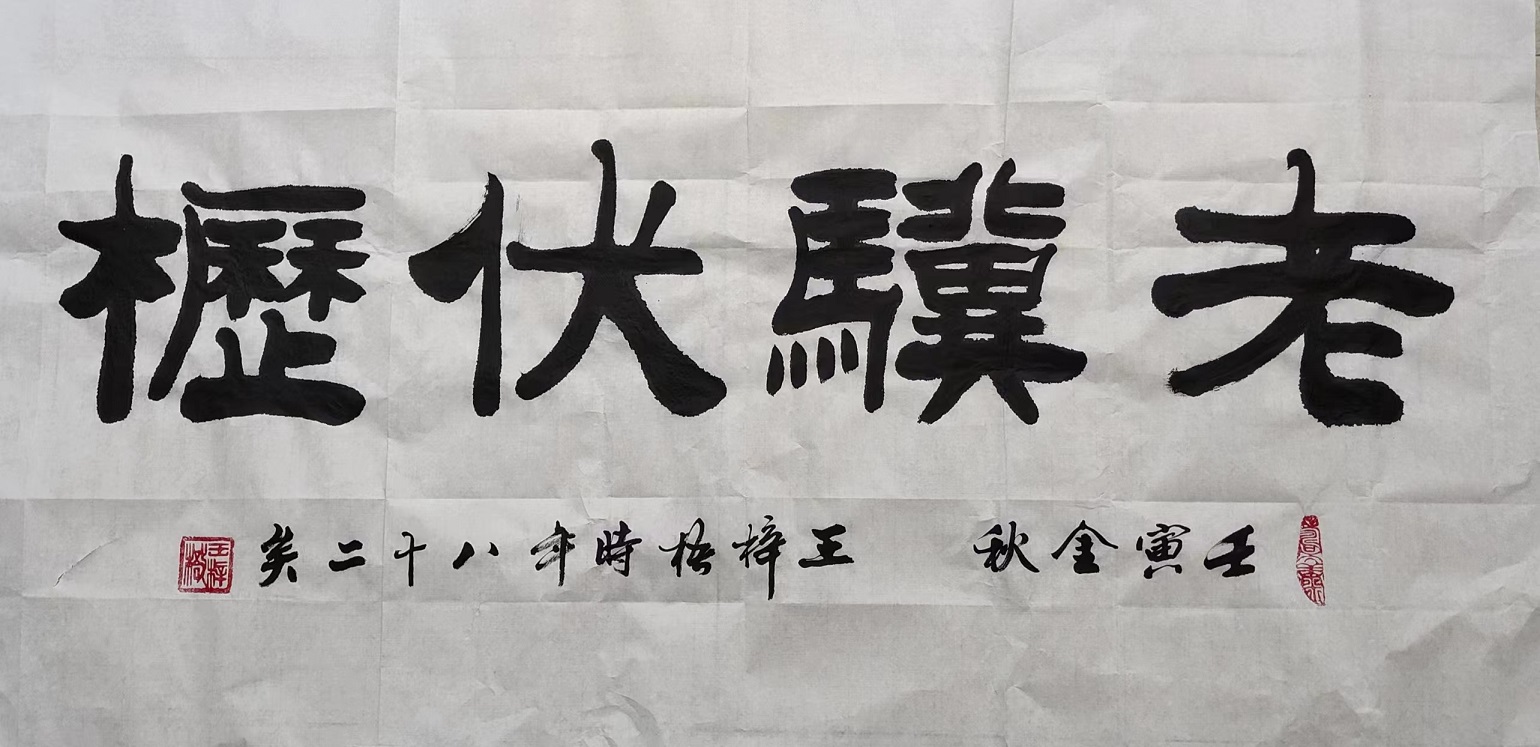 老驥伏櫪
壬寅金秋 王梓梧時年八十二矣
王梓梧